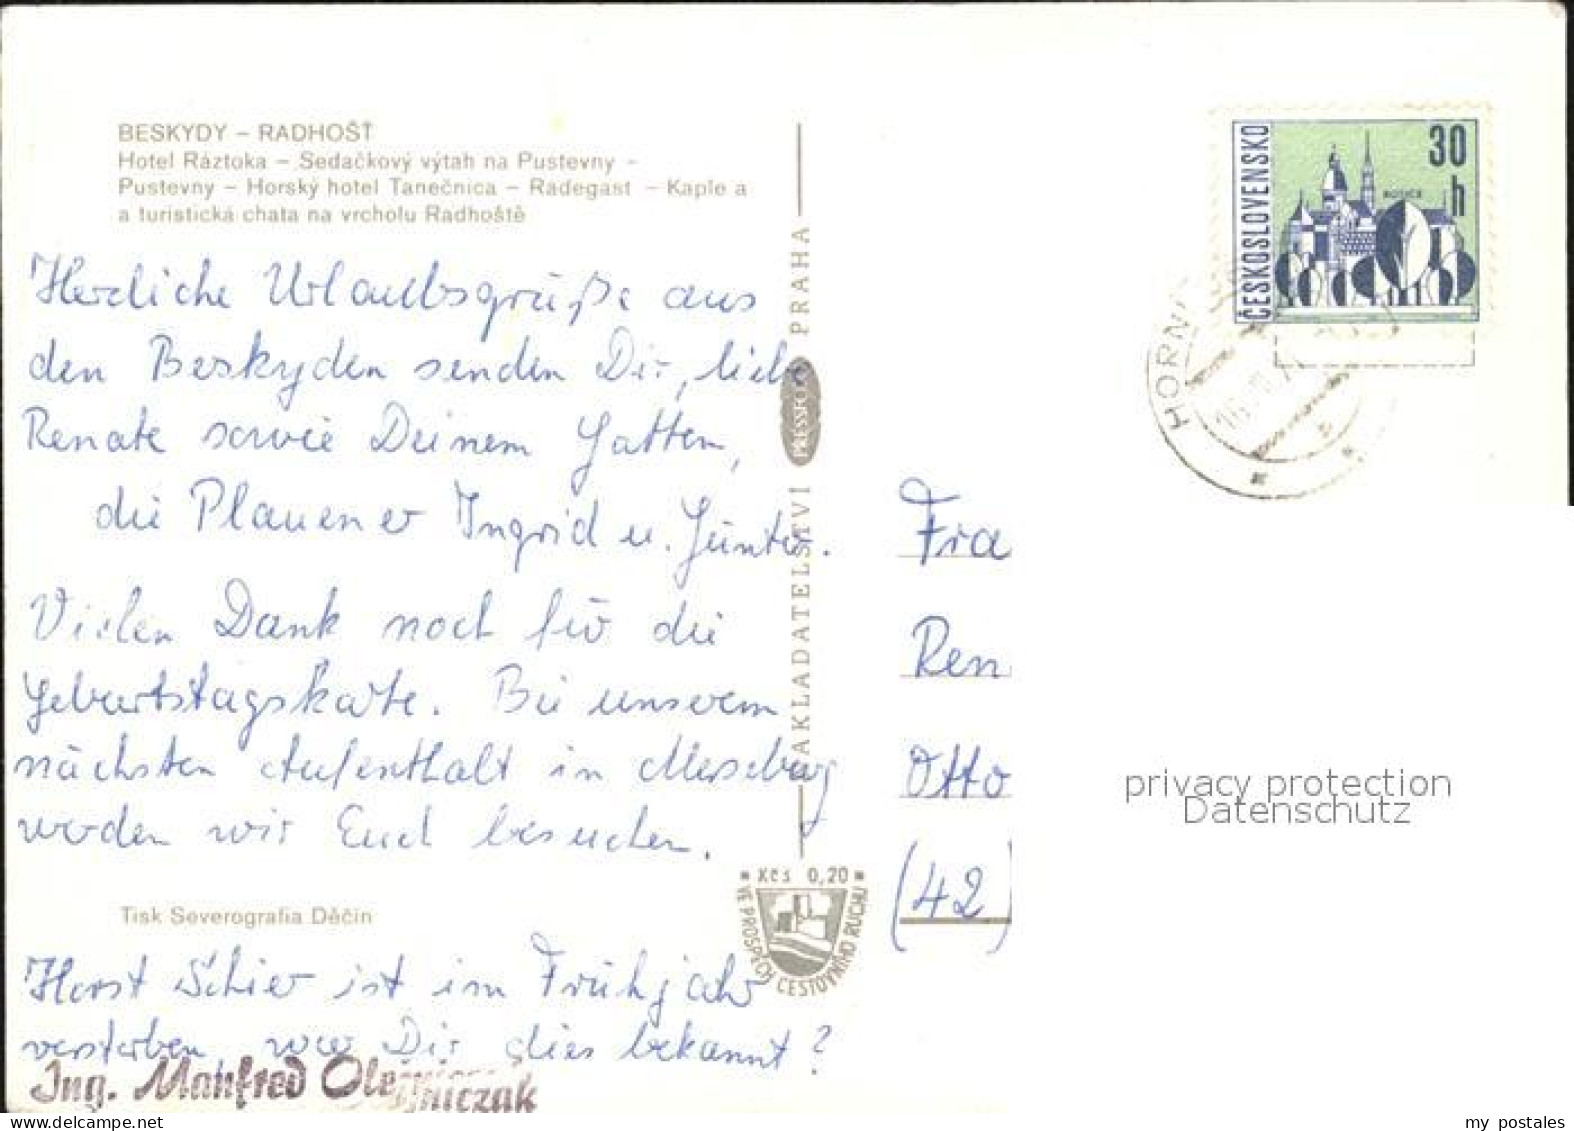 BESKYDY – RADHOŠŤ
Hotel Ráztoka – Sedačkový výtah na Pustevny –
Pustevny – Horský hotel Tanečnica – Radegast – Kaple a
a turistická chata na vrcholu Radhoště
Herzliche Urlaubsgrüße aus
den Beskyden senden Dir, liebe
Renate sowie Deinem Gatten,
die Plauener Ingrid u. Günter.
Vielen Dank noch für die
Geburtstagskarte. Bei unserem
nächsten Aufenthalt in Merseburg
werden wir Euch besuchen.
Tisk Severografia Děčín
Horst Schier ist im Frühjahr
verstorben, war Dir dies bekannt?
Ing. Manfred
NAKLADATELSTVÍ PRESSFOTO PRAHA
Kčs 0,20
VE PROSPĚCH CESTOVNÍHO RUCHU
ČESKOSLOVENSKO
30
h
KOŠICE
HORN
Fra
Ren
Otto
(42)
privacy protection
Datenschutz
www.delcampe.net
my_postales